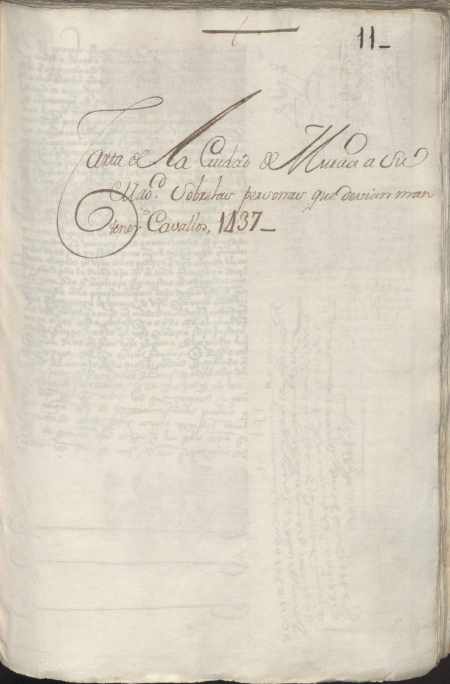 11_
Carta de la Ciudad de Murcia a Su
Magd. Sobre las personas que devian man
tener Cavallos, 1437_